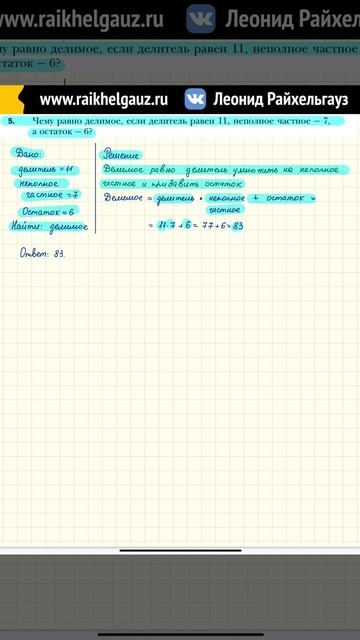 www.raikhelgauz.ru Леонид Райхельг
му равно делимое, если делитель равен 11, неполное частное
статок – 6?
www.raikhelgauz.ru Леонид Райхельгауз
5. Чему равно делимое, если делитель равен 11, неполное частное – 7,
а остаток – 6?
Дано:
делитель = 11
неполное
частное = 7
Остаток = 6
Найти: делимое
Решение
Делимое равно делитель умножить на неполное
частное и прибавить остаток
Делимое = делитель · неполное + остаток =
частное
= 11·7 + 6 = 77 + 6 = 83
Ответ: 83.